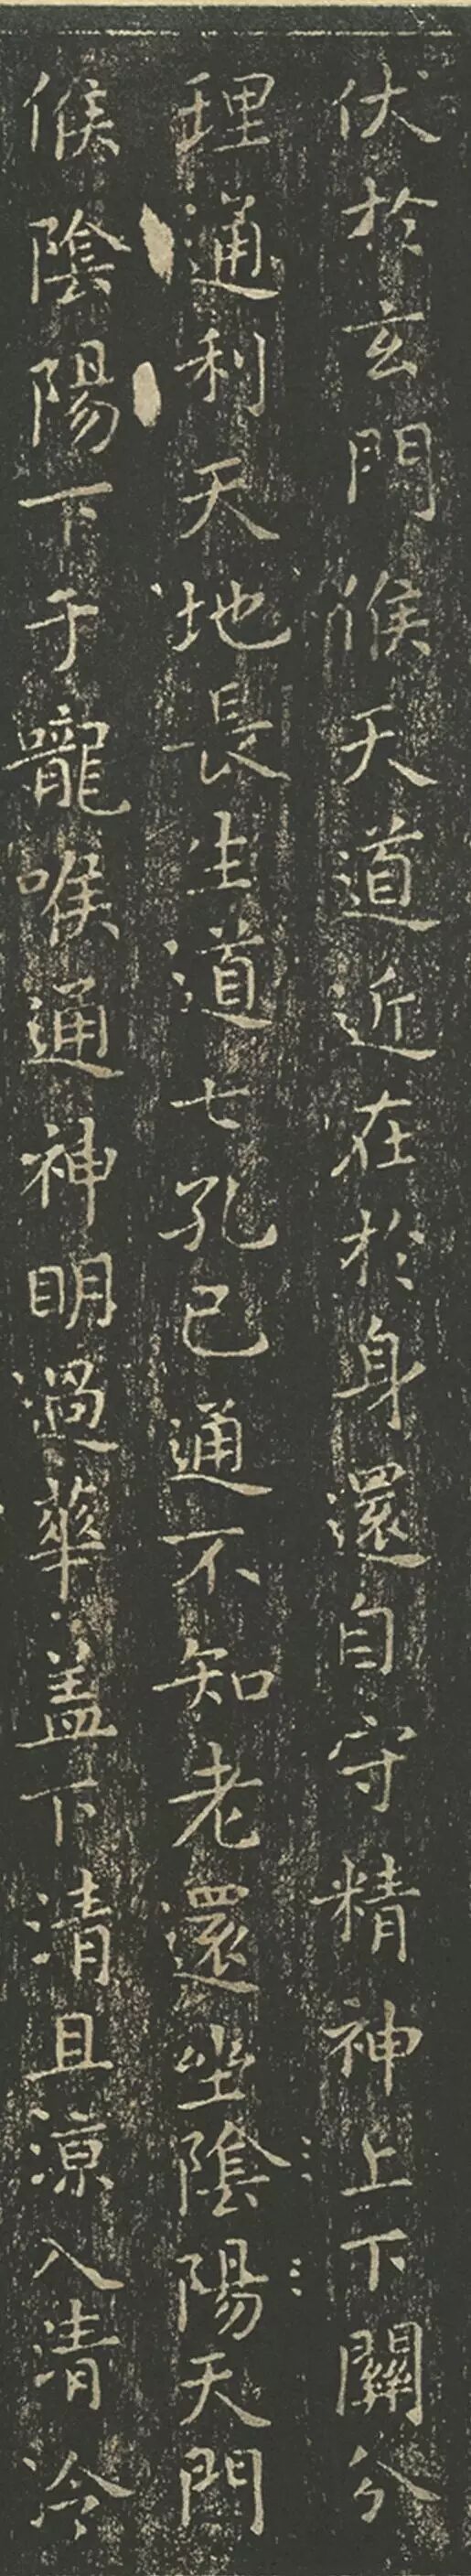 伏於玄門候天道近在於身還自守精神上下關分
理通利天地長生道七孔已通不知老還坐陰陽天門
候陰陽下于嚨喉通神明過華蓋下清且涼入清冷